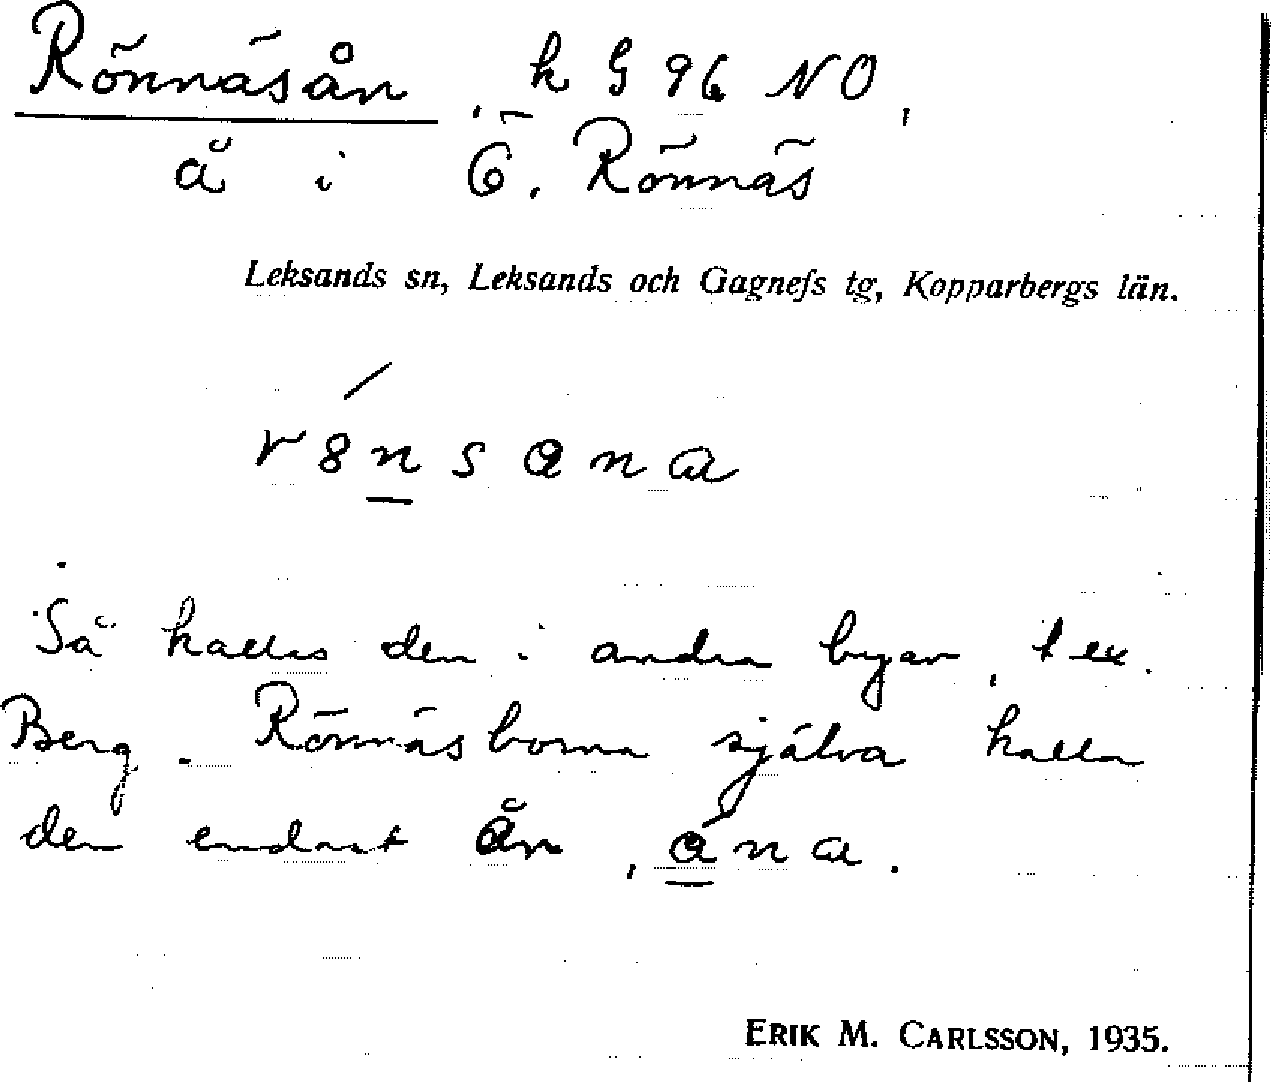 Rönnäsån, k G 96 NO,
å i Ö. Rönnäs
Leksands sn, Leksands och Gagnefs tg, Kopparbergs län.
Så kallas den i andra byar, t ex.
Berg. Rönnäsborna själva kalla
den endast ån,
ERIK M. CARLSSON, 1935.